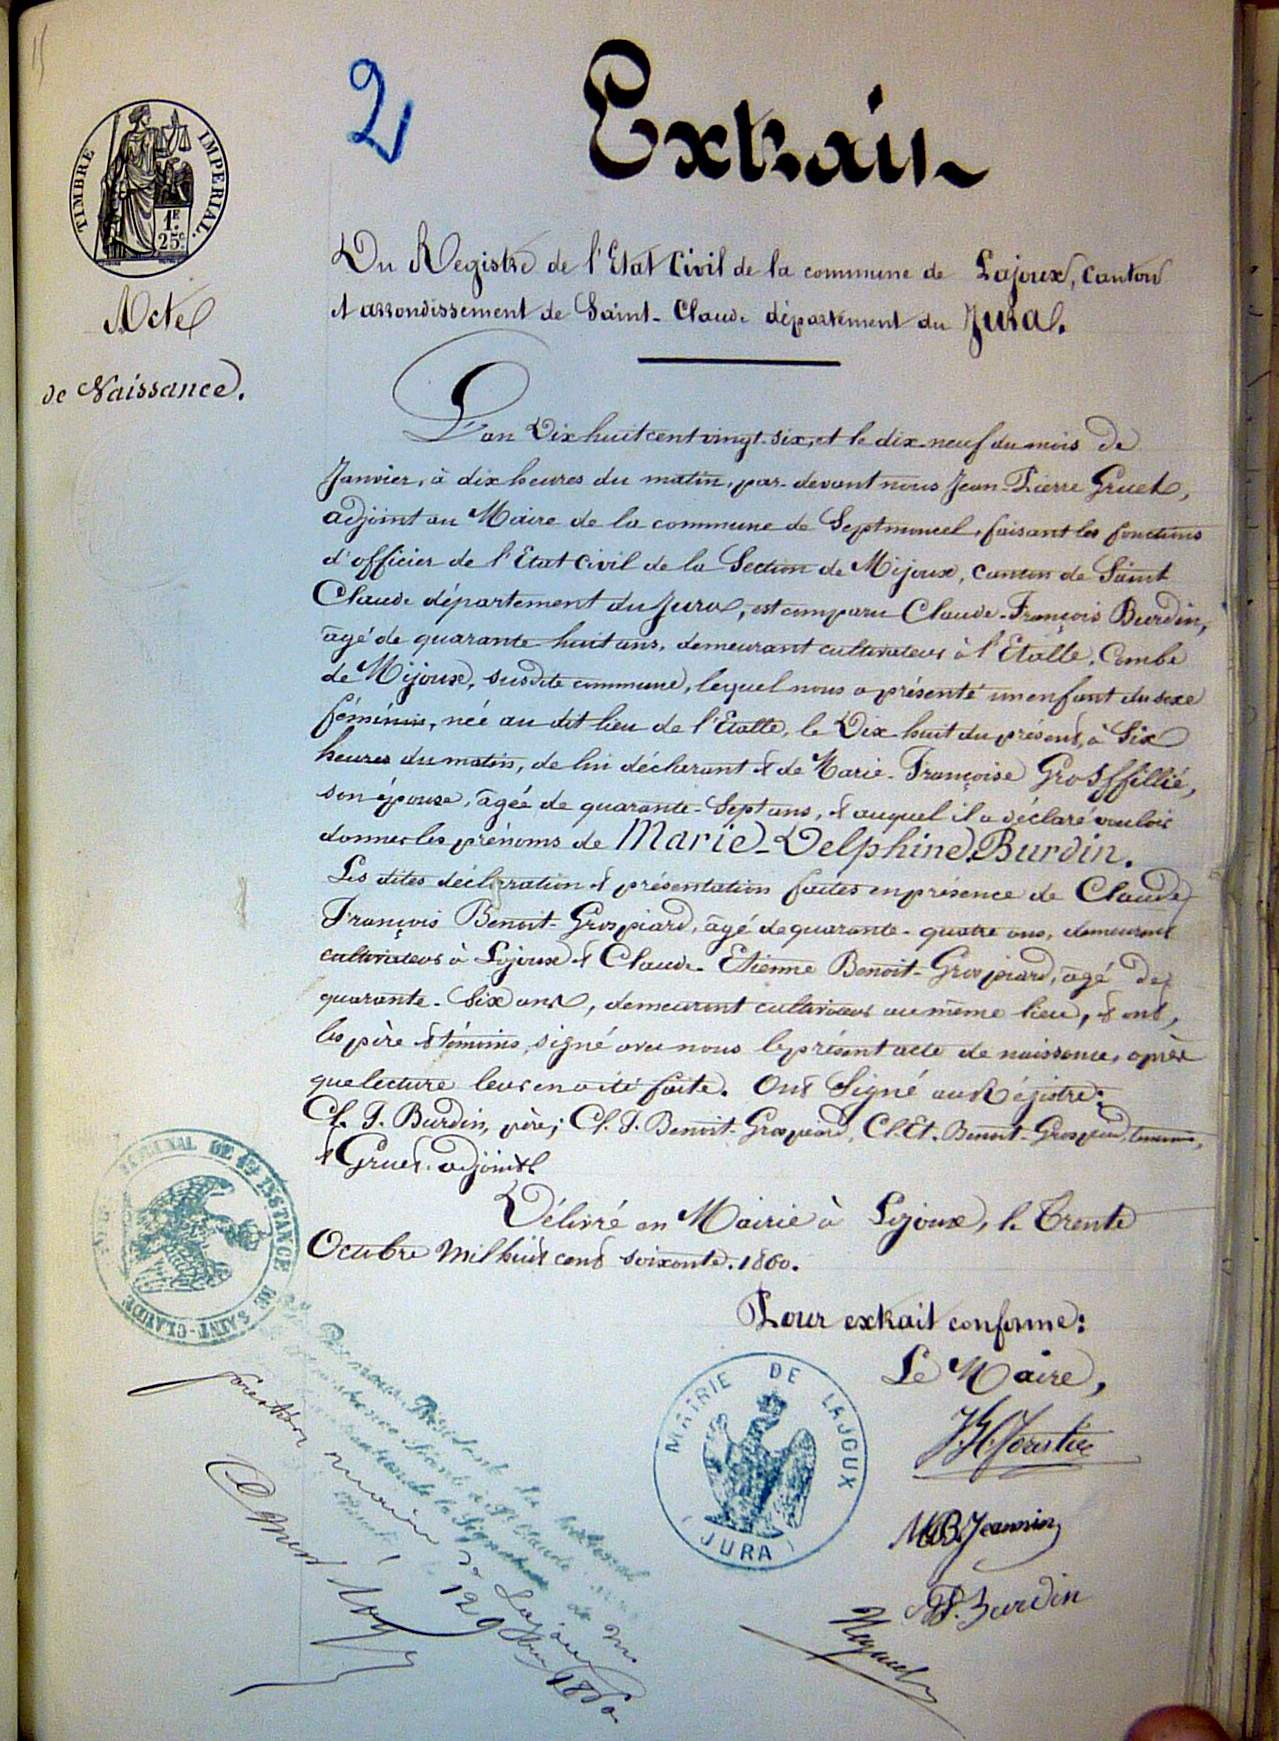 15
2
Extrait
TIMBRE IMPERIAL.
1F. 25c.
Acte
de Naissance.
Du Registre de l'Etat Civil de la commune de Lajoux, Canton
et arrondissement de Saint-Claude département du Jura.
L'an Dix huit cent vingt-six, et le dix-neuf du mois de
Janvier, à dix heures du matin, par-devant nous Jean-Pierre Gruet,
adjoint au Maire de la commune de Septmoncel, faisant les fonctions
d'officier de l'Etat Civil de la Section de Mijoux, canton de Saint
Claude département du Jura, est comparu Claude-François Burdin,
âgé de quarante huit ans, demeurant cultivateur à l'Etalle, Combe
de Mijoux, susdite commune, lequel nous a présenté un enfant du sexe
féminin, née au dit lieu de l'Etalle, le Dix huit du présent, à Six
heures du matin, de lui déclarant et de Marie-Françoise Grosffillié,
son épouse, âgée de quarante-Sept ans, et auquel il a déclaré vouloir
donner les prénoms de Marie-Delphine Burdin.
Les dites déclaration et présentation faites en présence de Claude
François Benoit-Grospiard, âgé de quarante-quatre ans, demeurant
cultivateur à Lajoux et Claude-Etienne Benoit-Grospiard, âgé de
quarante-Six ans, demeurant cultivateur au même lieu, et ont,
les père et témoins, signé avec nous le présent acte de naissance, après
que lecture leur en a été faite. Ont Signé au Régistre:
Cl. F. Burdin, père; Cl. F. Benoit-Grospiard, Cl. Et. Benoit-Grospiard, témoins,
et Gruet adjoint
Délivré en Mairie à Lajoux, le Trente
Octobre mil huit cent soixante. 1860.
Pour extrait conforme:
Le Maire,
TRIBUNAL DE 1ère INSTANCE DE SAINT-CLAUDE
MAIRIE DE LAJOUX
(JURA)
Président du tribunal
de la Signature de M.
maire de Lajoux
12 9bre 1860
M.B. Jeannin
F. Burdin